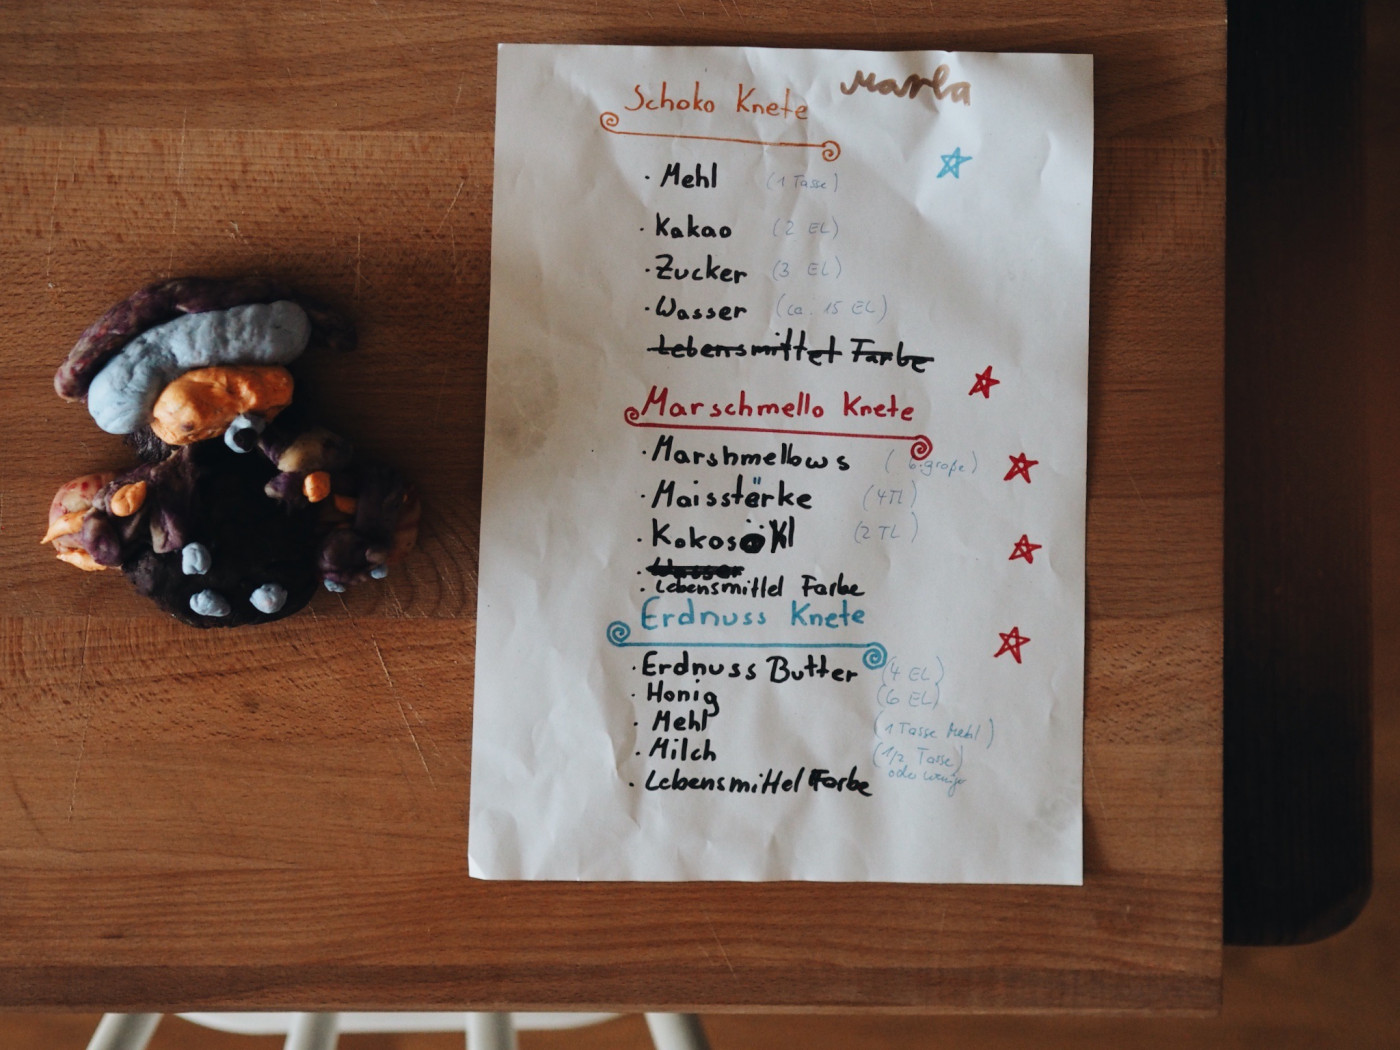 Marla
Schoko Knete
· Mehl (1 Tasse)
· Kakao (2 EL)
· Zucker (3 EL)
· Wasser (ca. 15 EL)
Lebensmittel Farbe
Marschmello Knete
· Marshmellows (6 große)
· Maisstärke (4TL)
· Kokosöl (2 TL)
· Wasser
· Lebensmittel Farbe
Erdnuss Knete
· Erdnuss Butter (4 EL)
· Honig (6 EL)
· Mehl (1 Tasse Mehl)
· Milch (1/2 Tasse)
oder weniger
· Lebensmittel Farbe